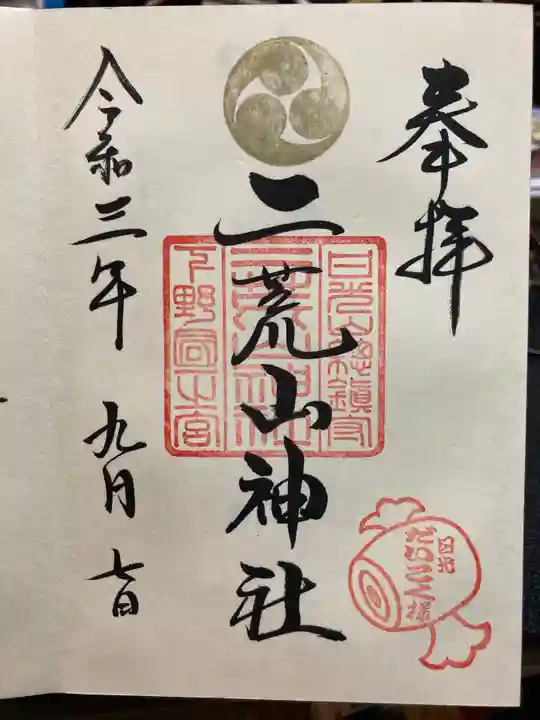 奉拝
日光山総鎮守
二荒山神社
二荒山神社
下野國一宮
日光
だいこく様
令和三年 九月 七日